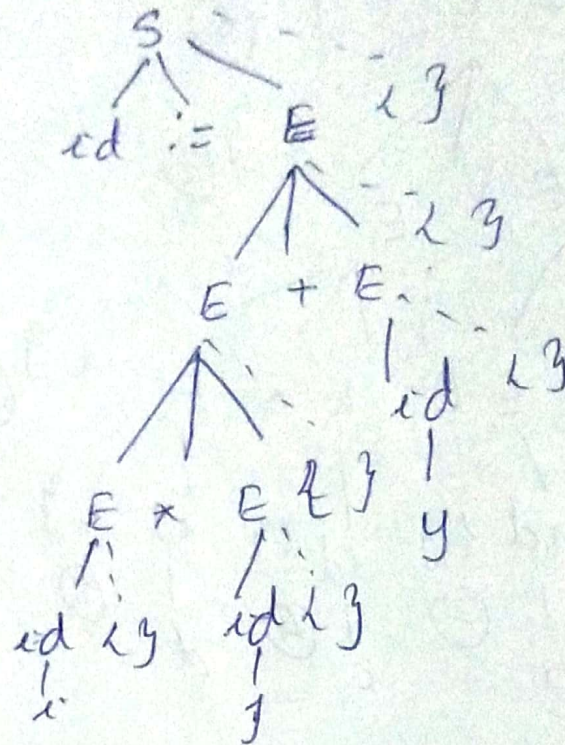 S
id := E { }
{ }
E + E
id { }
E * E { }
y
id { } id { }
i j